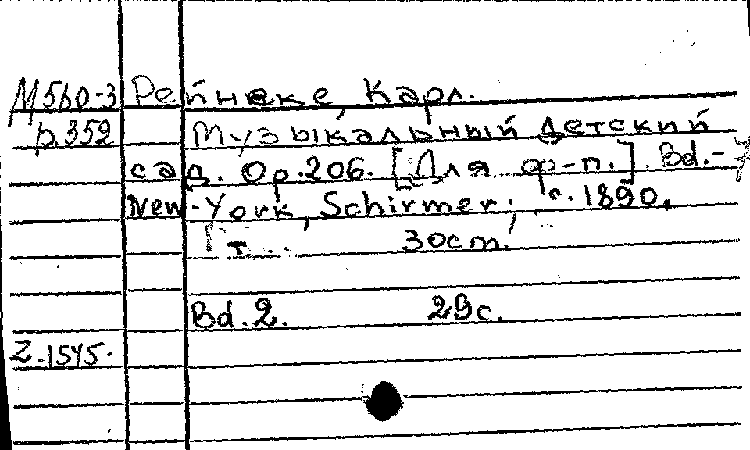 М560-3 Рейнеке, Карл.
р.352 Музыкальный детский
сад. Op.206. [Для ф-п.] Bd.-
New-York, Schirmer, c. 1890.
т... 30cm.
Bd. 2. 29c.
Z-1545.